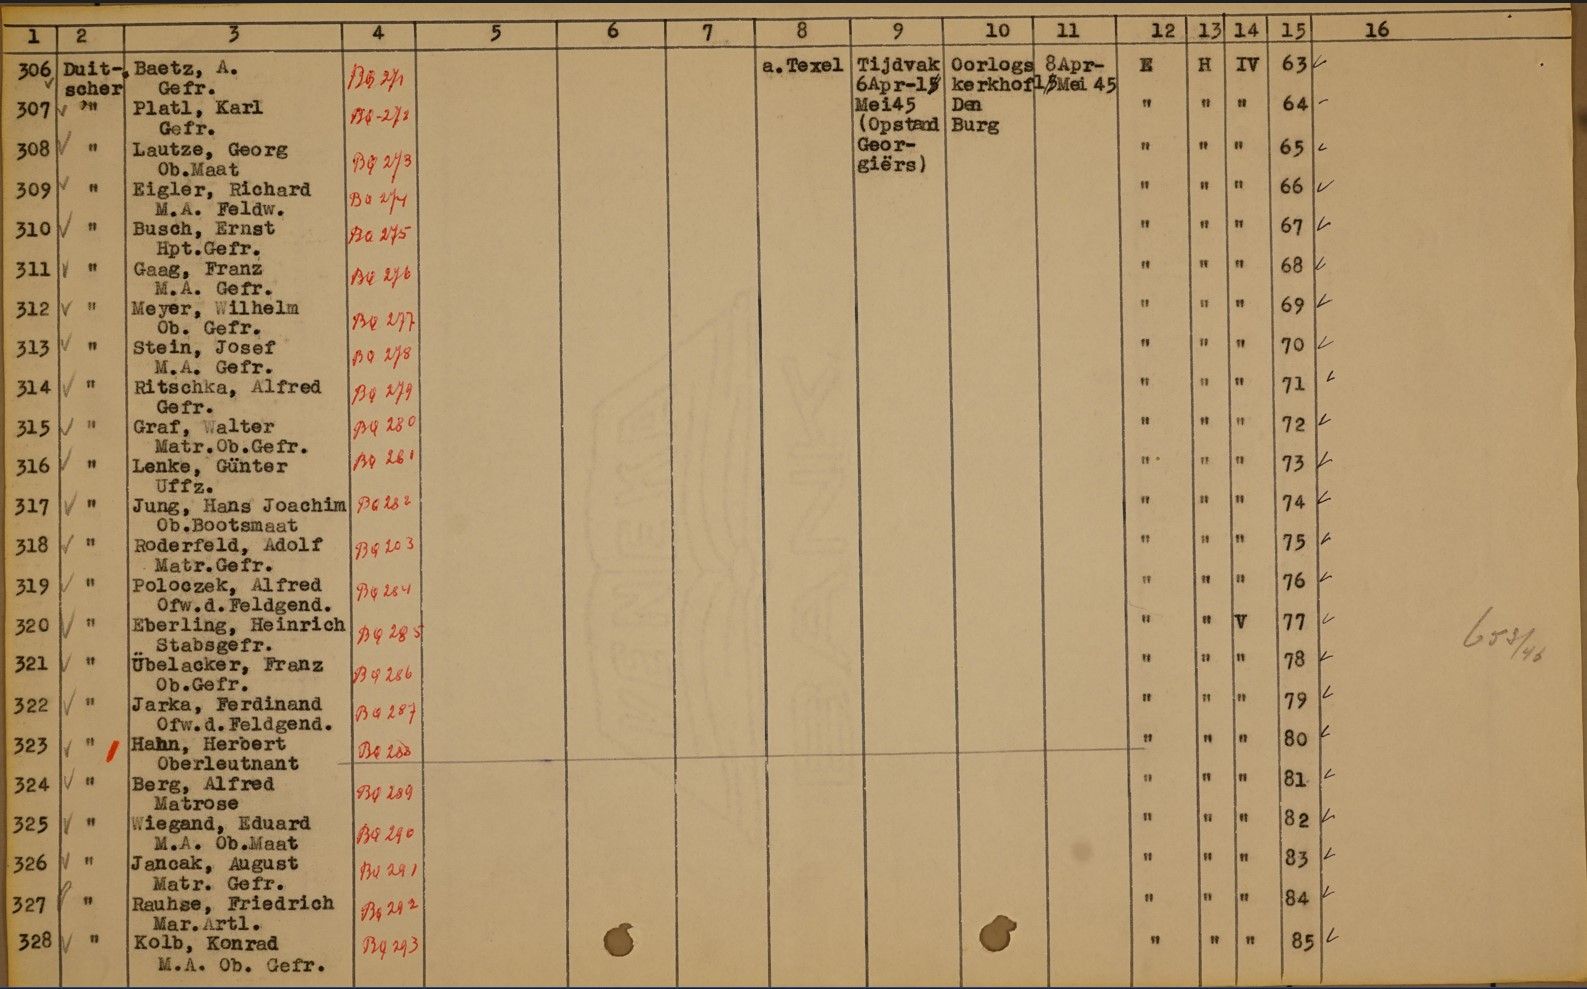 1 2 3 4 5 6 7 8 9 10 11 12 13 14 15 16
306 Duit- Baetz, A. BQ 271 a.Texel Tijdvak Oorlogs 8Apr- E H IV 63
scher Gefr. 6Apr-15 kerkhof 15Mei 45
307 " Platl, Karl BQ-272 Mei45 Den " " " 64
Gefr. (Opstand Burg
308 " Lautze, Georg BQ 273 Geor- " " " 65
Ob.Maat giërs)
309 " Eigler, Richard BQ 274 " " " 66
M.A. Feldw.
310 " Busch, Ernst BQ 275 " " " 67
Hpt.Gefr.
311 " Gaag, Franz BQ 276 " " " 68
M.A. Gefr.
312 " Meyer, Wilhelm BQ 277 " " " 69
Ob. Gefr.
313 " Stein, Josef BQ 278 " " " 70
M.A. Gefr.
314 " Ritschka, Alfred BQ 279 " " " 71
Gefr.
315 " Graf, Walter BQ 280 " " " 72
Matr.Ob.Gefr.
316 " Lenke, Günter BQ 281 " " " 73
Uffz.
317 " Jung, Hans Joachim BQ 282 " " " 74
Ob.Bootsmaat
318 " Roderfeld, Adolf BQ 283 " " " 75
Matr.Gefr.
319 " Poloczek, Alfred BQ 284 " " " 76
Ofw.d.Feldgend.
320 " Eberling, Heinrich BQ 285 " " V 77
Stabsgefr.
321 " Übelacker, Franz BQ 286 " " " 78
Ob.Gefr.
322 " Jarka, Ferdinand BQ 287 " " " 79
Ofw.d.Feldgend.
323 " Hahn, Herbert BQ 288 " " " 80
Oberleutnant
324 " Berg, Alfred BQ 289 " " " 81
Matrose
325 " Wiegand, Eduard BQ 290 " " " 82
M.A. Ob.Maat
326 " Jancak, August BQ 291 " " " 83
Matr. Gefr.
327 " Rauhse, Friedrich BQ 292 " " " 84
Mar.Artl.
328 " Kolb, Konrad BQ 293 " " " 85
M.A. Ob. Gefr.